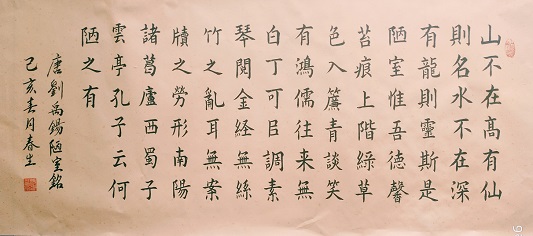 山不在高有仙
則名水不在深
有龍則靈斯是
陋室惟吾德馨
苔痕上階綠草
色入簾青談笑
有鴻儒往来無
白丁可㠯調素
琴閱金経無絲
竹之亂耳無案
牘之勞形南陽
諸葛廬西蜀子
雲亭孔子云何
陋之有
唐劉禹錫陋室銘
己亥春月春生